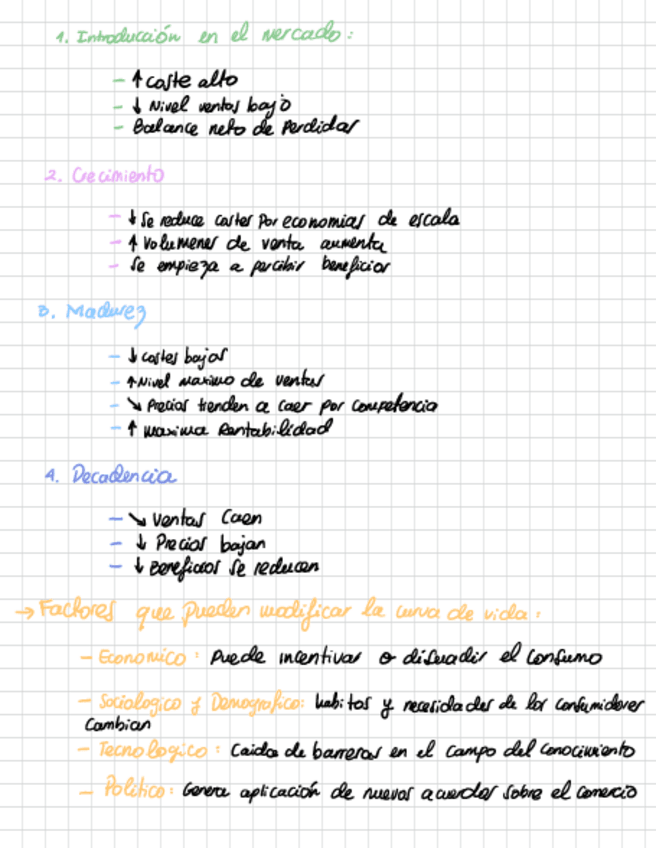 1. Introducción en el mercado:
- ↑ coste alto
- ↓ Nivel ventas bajo
- Balance neto de Perdidas
2. Crecimiento
- ↓ Se reduce costes por economias de escala
- ↑ Volumenes de venta aumenta
- Se empieza a percibir beneficios
3. Madurez
- ↓ costes bajos
- ↑ Nivel maximo de ventas
- ↘ Precios tienden a caer por competencia
- ↑ maxima Rentabilidad
4. Decadencia
- ↘ Ventas Caen
- ↓ Precios bajan
- ↓ Beneficios se reducen
→ Factores que pueden modificar la curva de vida:
- Economico: Puede incentivar o disuadir el consumo
- Sociologico y Demografico: habitos y necesidades de los consumidores
cambian
- Tecnologico: Caida de barreras en el campo del conocimiento
- Politico: Genera aplicación de nuevos acuerdos sobre el comercio